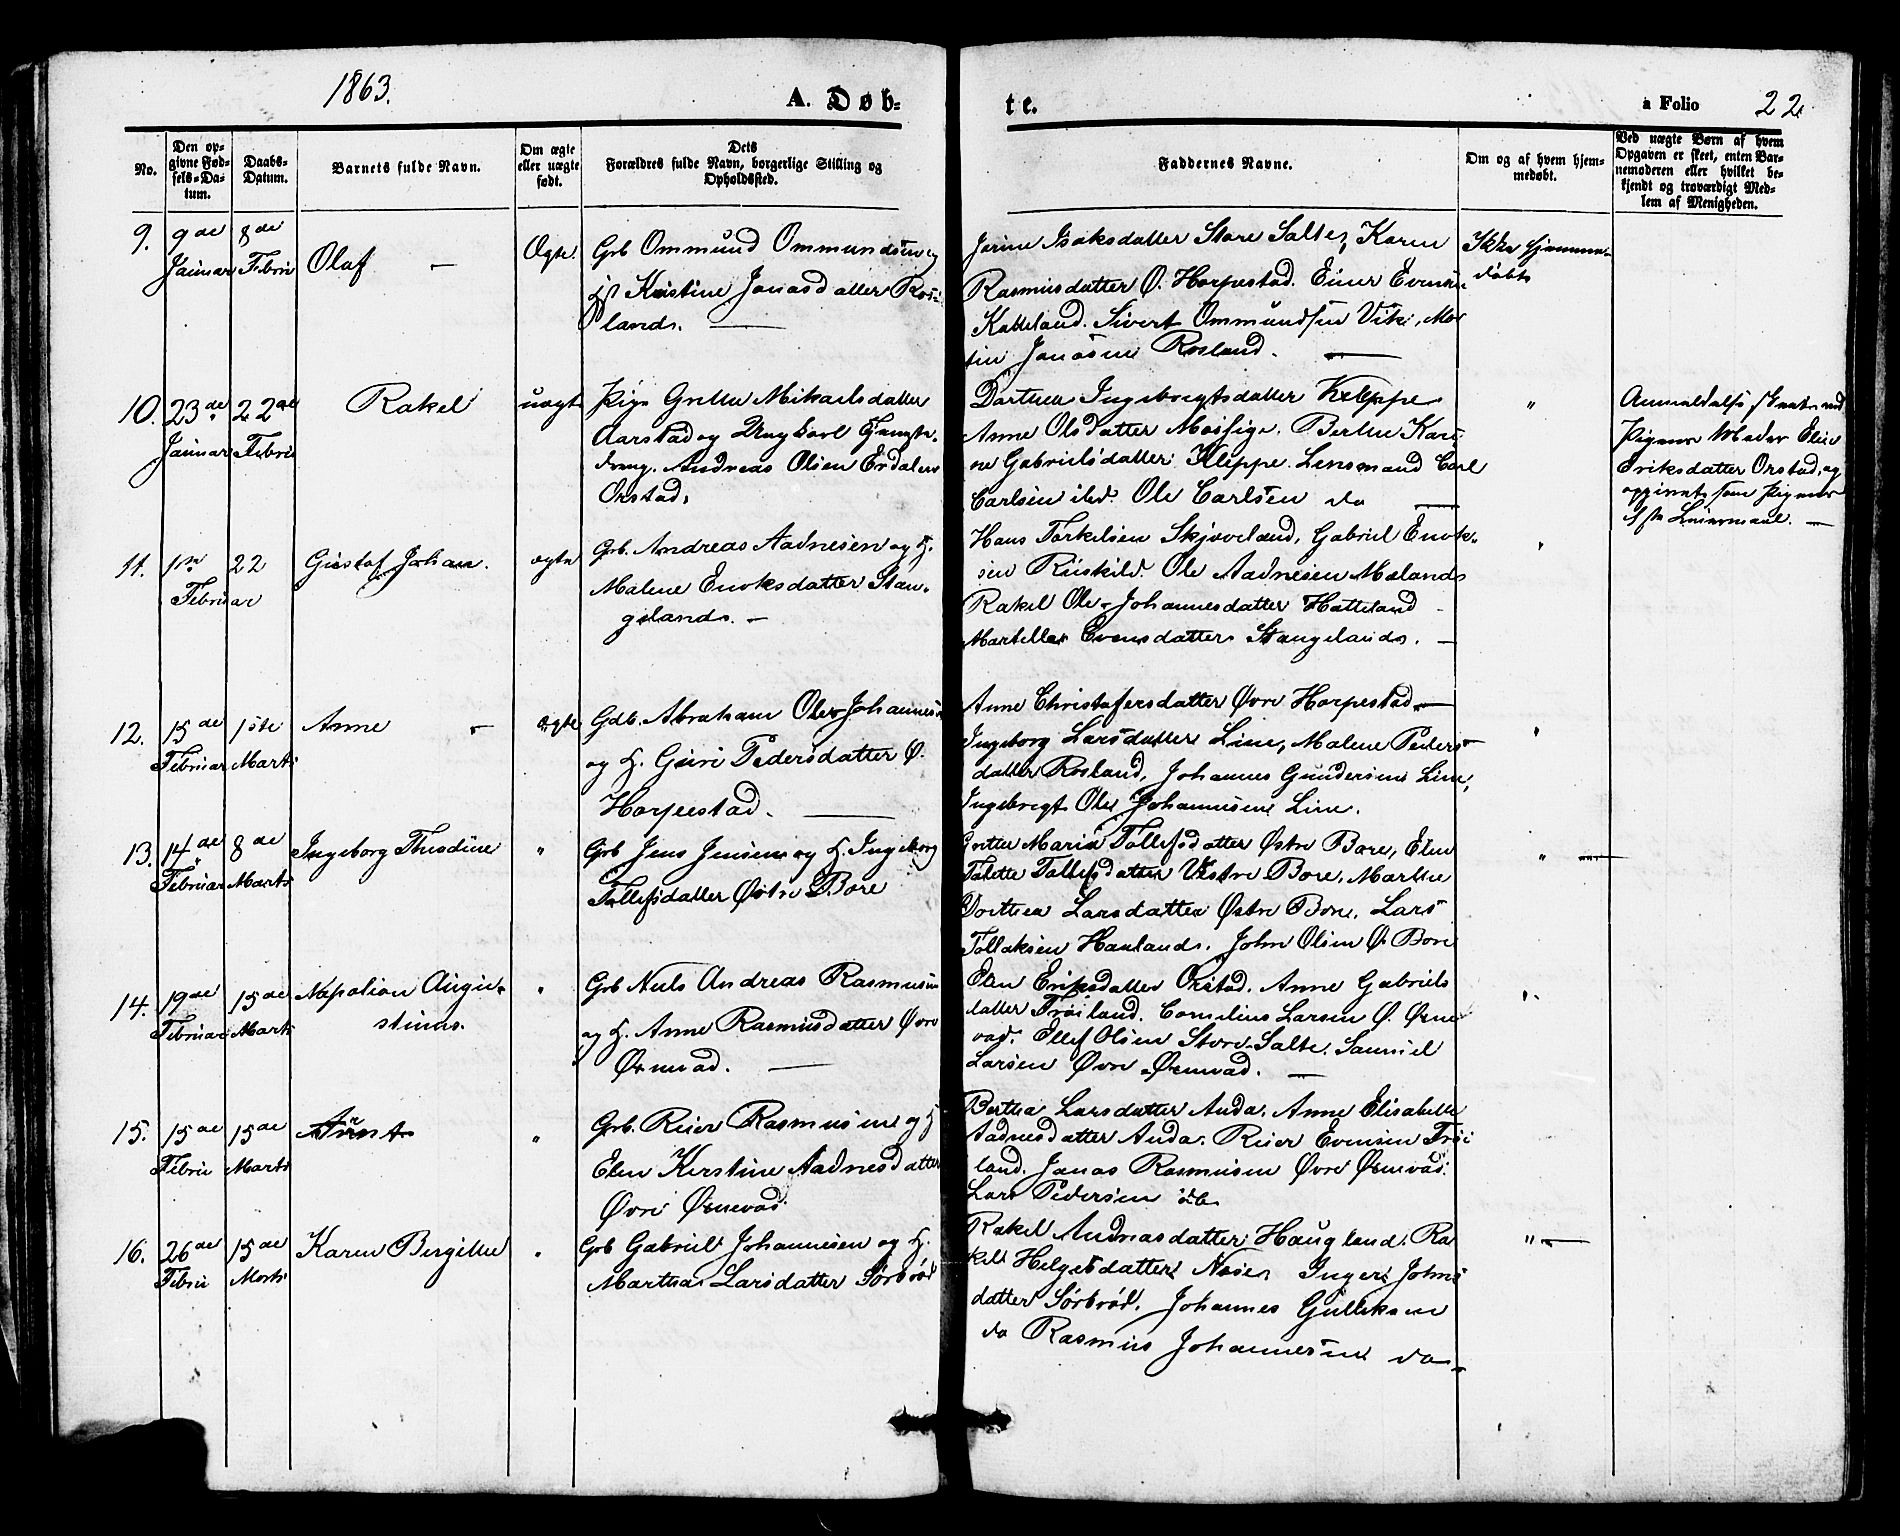 1863.
A. Døb-
te.
a Folio 22
No.
Den op-
givne Fød-
sels-Da-
tum.
Daabs-
Datum.
Barnets fulde Navn.
Om ægte
eller uægte
født.
Dets
Forældres fulde Navn, borgerlige Stilling og
Opholdssted.
Faddernes Navne.
Om og af hvem hjem-
medøbt.
Ved uægte Børn af hvem
Opgaven er skeet, enten Bar-
nemoderen eller hvilket be-
kjendt og troværdigt Med-
lem af Menigheden.
9.
9de
Januar
8de
Febru
Olaf —
Ægte
Grb Ommund Ommundsen og
H Kristine Jonasdatter Ros-
land. —
Jorine Isaksdatter Store Salte, Karen
Rasmusdatter Ø. Horpestad. Einer Evensen
Katteland. Sivert Ommundsen Vik, Mor-
ten Jonasen Rosland. —
Ikke hjemme-
døbt
10.
23de
Januar
22de
Febru
Rakel
uægte
Pige Grethe Mikaelsdatter
Aarstad og Ungkarl Tjeneste-
dreng. Andreas Olsen Erdalen
Orstad.
Dorthea Ingebregtsdatter Kleppe
Anne Olsdatter Mossige. Berthe Kari-
ne Gabrielsdatter Kleppe. Lensmand Carl
Carlsen ibd. Ole Carlsen do —
"
Anmeldelse skeet ved
Pigens Moder Elen
Eriksdatter Orstad, og
opgivet som Pigens
1ste Leiermaal. —
11.
1ste
Februar
22
Gustaf Johan.
ægte
Grb. Andreas Aadnesen og H.
Malene Enoksdatter Stan-
geland. —
Hans Torkelsen Skjæveland, Gabriel Enok-
sen Riskild. Ole Aadnesen Mæland
Rakel Ole-Johannesdatter Hatteland
Marthe Evensdatter Stangeland. —
"
12.
15de
Februar
1ste
Marts
Anne —
ægte
Gdb. Abraham Ole Johannes
og H. Guri Pedersdatter Ø.
Horpestad. —
Anne Christofersdatter Øvre Horpestad —
Ingeborg Larsdatter Line, Malene Peders-
datter Rosland, Johannes Gundersen Line,
Ingebregt Ole Johannesen Line.
"
13.
14de
Februar
8de
Marts
Ingeborg Theodine
"
Grb Jens Jensen og H. Ingeborg
Tollefsdatter Østre Bore
Grethe Maria Tollefsdatter Østre Bore, Elen
Talette Tollefsdatter Vestre Bore, Marthe
Dorthea Larsdatter Østre Bore, Lars
Tollaksen Hauland. John Olsen Ø Bore
" —
14.
19de
Februar
15de
Marts
Napolion Augu-
stinus.
"
Grb Nils Andreas Rasmusen
og H. Anne Rasmusdatter Øvre
Ørnevad. —
Elen Eriksdatter Orstad. Anne Gabriels
datter Trøiland. Cornelius Larsen Ø. Ørne
vad. Ellef Olsen Store-Salte. Samuel
Larsen Øvre-Ørnevad. —
"
15.
15de
Febru
15de
Marts
"
Grb. Reier Rasmusen og H
Elen Kirstine Aadnesdatter
Øvre Ørnevad
Bertha Larsdatter Anda. Anne Elisabethe
Aadnesdatter Anda. Reier Evensen Trøi
land. Jonas Rasmusen Øvre Ørnevad.
Lars Pedersen ib
16.
26de
Febru
15de
Marts
Karen Bergithe
"
Grb Gabriel Johannesen og H.
Martha Larsdatter Sørbrød
Rakel Andreasdatter Haugland. Ra
kel Helgesdatter Næse, Inger Johns
datter Sørbrød. Johannes Gulleksen
do Rasmus Johannesen do —
" —